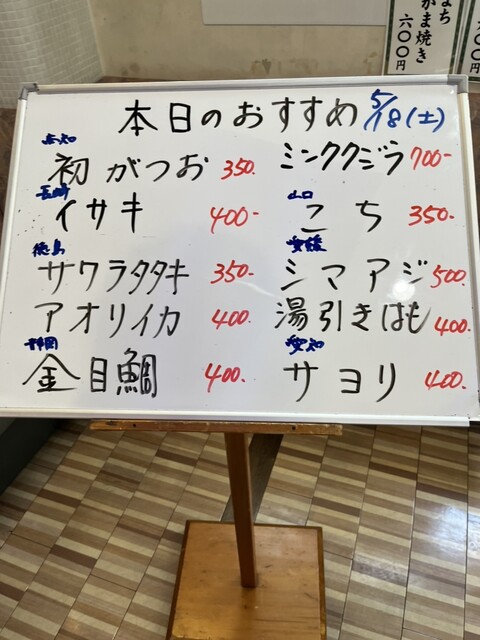 まち
がま焼き
六〇〇円
本日のおすすめ 5/18(土)
高知
初がつお 350.
ミンククジラ 700-
長崎
イサキ 400-
山口
こち 350.
徳島
サワラタタキ 350-
愛媛
シマアジ 500.
アオリイカ 400.
湯引きはも 400.
静岡
金目鯛 400.
愛知
サヨリ 400.